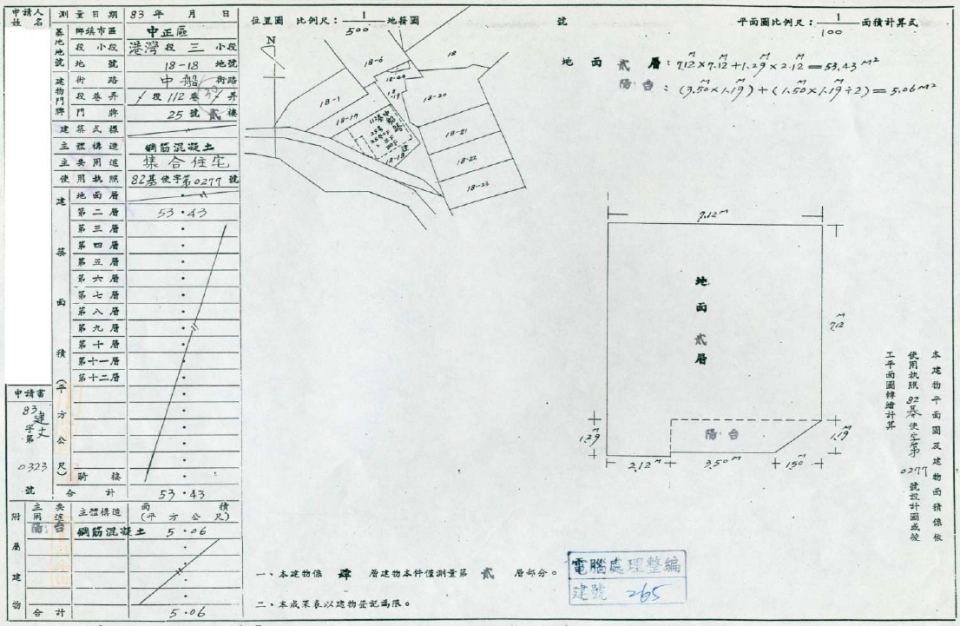 申請人姓名
測量日期 83年 月 日
基地地號
鄉鎮市區 中正區
段 小段 港灣段三小段
地號 18-18 地號
建物門牌
街路 中船街路
段巷弄 段112巷 弄
門牌 25號 貳樓
建築式樣
主體構造 鋼筋混凝土
主要用途 集合住宅
使用執照 82基使字第0277號
建築面積(平方公尺)
地面層
第二層 53.43
第三層
第四層
第五層
第六層
第七層
第八層
第九層
第十層
第十一層
第十二層
騎樓
合計 53.43
申請書
83
字第
0323
號
附屬建物
主要用途 主體構造 面積(平方公尺)
陽台 鋼筋混凝土 5.06
合計 5.06
位置圖 比例尺:1/500 地籍圖 號
平面圖比例尺:1/100 面積計算式
地面貳層:7.12M×7.12M+1.29M×2.12M=53.43M²
陽台:(3.50M×1.19M)+(1.50M×1.19M÷2)=5.06M²
N
18-6
18
18-20
18-1
18-19
18-21
18-22
18-23
18-18
7.12M
7.12M
地面貳層
陽台
1.29M
1.19M
2.12M
3.50M
1.50M
本建物平面圖及建物面積係依
使用執照82基使字第0277號設計圖或竣
工平面圖轉繪計算
一、本建物係肆層建物本件僅測量第貳層部分。
二、本成果表以建物登記為限。
電腦處理整編
建號 265